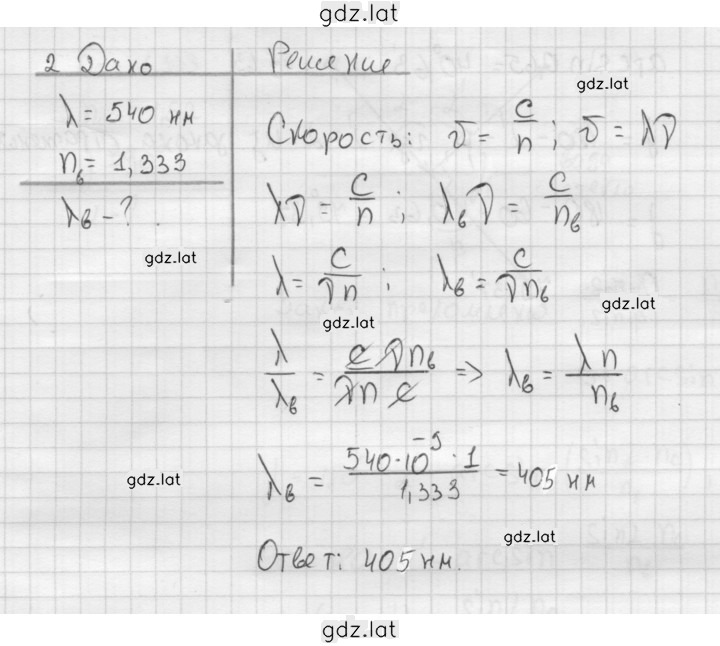 gdz.lat
2 Дано
Решение
λ = 540 нм
n_в = 1,333
λ_в - ?
gdz.lat
Скорость: υ = c/n ; υ = λν
λν = c/n ; λ_в ν = c/n_в
gdz.lat
λ = c/(νn) ; λ_в = c/(νn_в)
gdz.lat
gdz.lat
λ/λ_в = (c ν n_в)/(ν n c) => λ_в = λn/n_в
λ_в = (540·10⁻⁹·1)/1,333 = 405 нм
gdz.lat
gdz.lat
Ответ: 405 нм.
gdz.lat